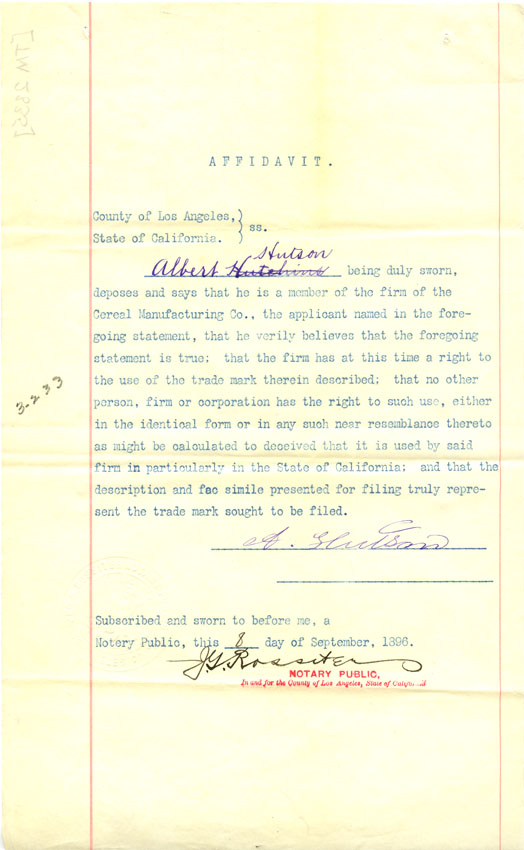 [TM 2635]
AFFIDAVIT.
County of Los Angeles,)
State of California. ) ss.
Hutson
Albert Hutchins being duly sworn,
deposes and says that he is a member of the firm of the
Cereal Manufacturing Co., the applicant named in the fore-
going statement, that he verily believes that the foregoing
statement is true: that the firm has at this time a right to
the use of the trade mark therein described; that no other
person, firm or corporation has the right to such use, either
in the identical form or in any such near resemblance thereto
as might be calculated to deceived that it is used by said
firm in particularly in the State of California; and that the
description and fac simile presented for filing truly repre-
sent the trade mark sought to be filed.
3-233
A. Hutson
Subscribed and sworn to before me, a
Notary Public, this 8 day of September, 1896.
J.G. Rossiter
NOTARY PUBLIC,
In and for the County of Los Angeles, State of California